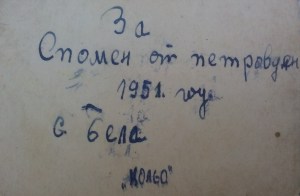 За
Спомен от петровден
1951. год
с. Бела
"Кольо"